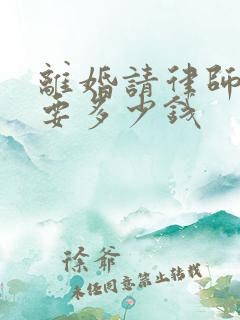 離婚請律師
要多少錢
徐爺
未经同意禁止转载